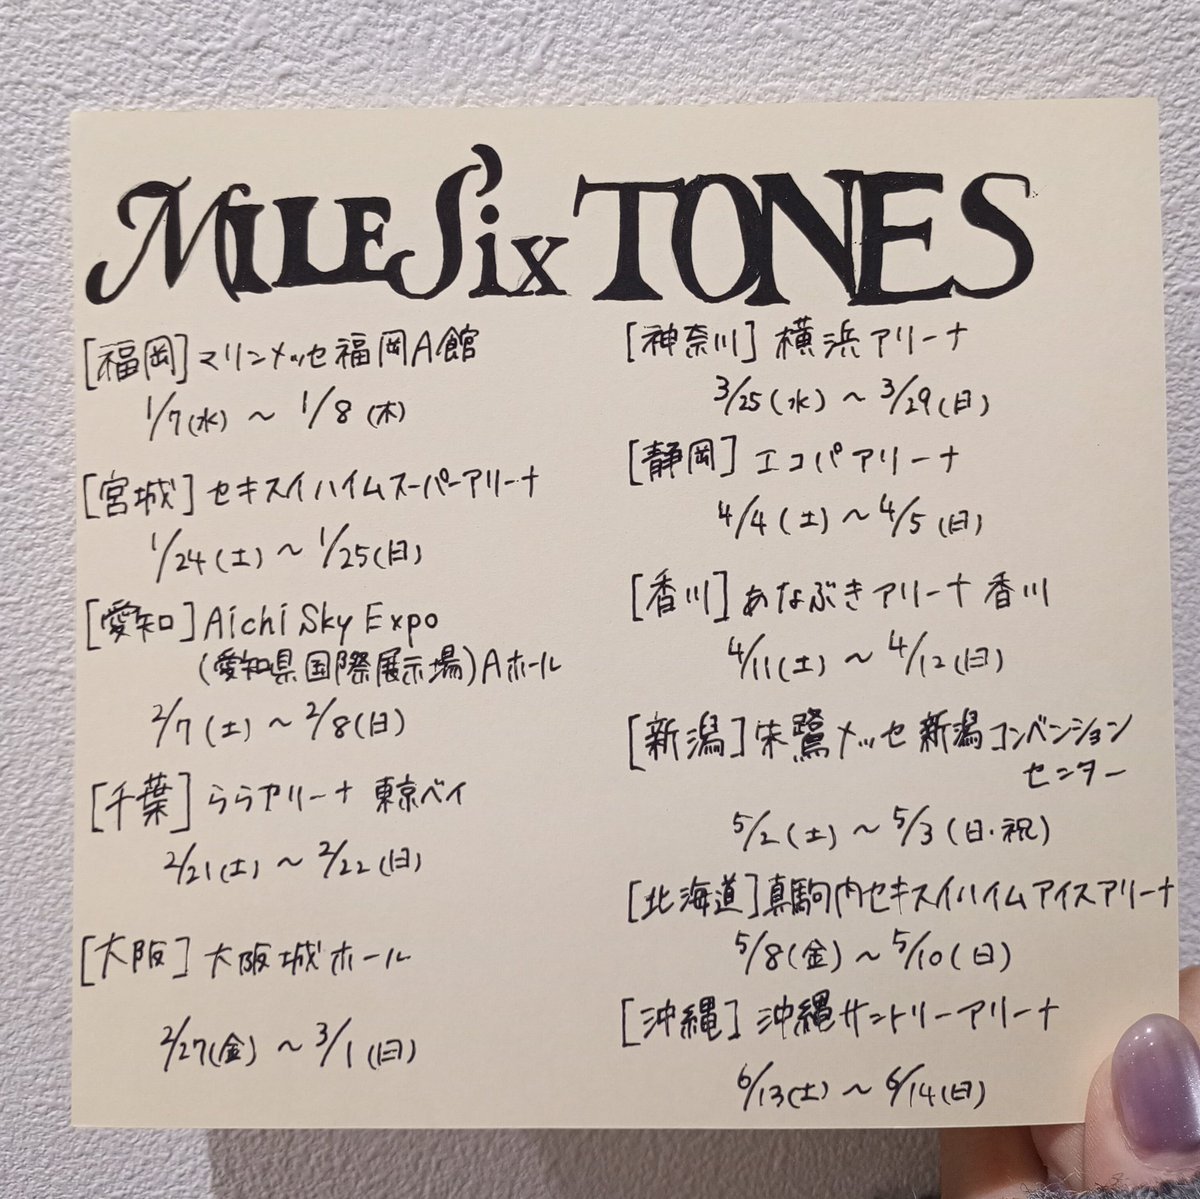 MILE SixTONES
[福岡] マリンメッセ福岡A館
1/7(水) ~ 1/8 (木)
[宮城] セキスイハイムスーパーアリーナ
1/24(土) ~ 1/25(日)
[愛知] Aichi Sky Expo
(愛知県国際展示場)Aホール
2/7(土) ~ 2/8(日)
[千葉] ららアリーナ 東京ベイ
2/21(土) ~ 2/22(日)
[大阪] 大阪城ホール
2/27(金) ~ 3/1(日)
[神奈川] 横浜アリーナ
3/25(水) ~ 3/29(日)
[静岡] エコパアリーナ
4/4(土) ~ 4/5(日)
[香川] あなぶきアリーナ香川
4/11(土) ~ 4/12(日)
[新潟] 朱鷺メッセ 新潟コンベンション
センター
5/2(土) ~ 5/3(日・祝)
[北海道] 真駒内セキスイハイムアイスアリーナ
5/8(金) ~ 5/10(日)
[沖縄] 沖縄サントリーアリーナ
6/13(土) ~ 6/14(日)